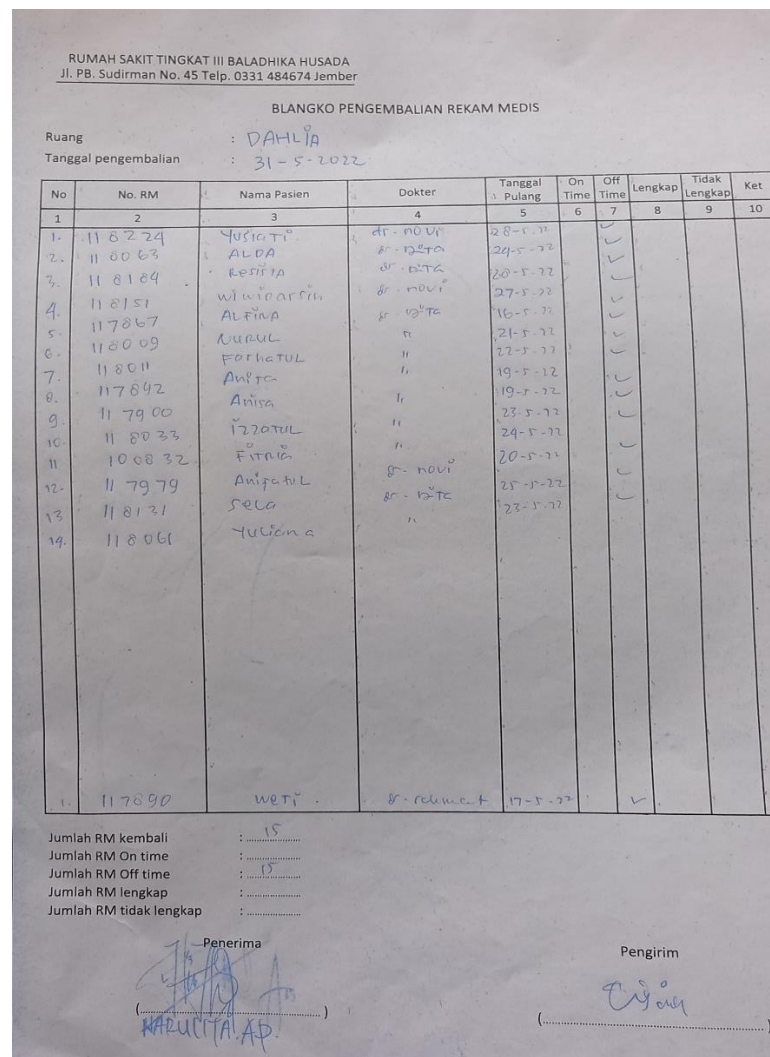 RUMAH SAKIT TINGKAT III BALADHIKA HUSADA
Jl. PB. Sudirman No. 45 Telp. 0331 484674 Jember
BLANGKO PENGEMBALIAN REKAM MEDIS
Ruang : DAHLIA
Tanggal pengembalian : 31-5-2022
No No. RM Nama Pasien Dokter Tanggal Pulang On Time Off Time Lengkap Tidak Lengkap Ket
1 2 3 4 5 6 7 8 9 10
1. 118224 Yusiati dr. novi 28-5-22 ✓
2. 118063 ALDA dr. Dita 24-5-22 ✓
3. 118184 dr. Dita 28-5-22 ✓
4. 118151 wiwinarsih dr. novi 27-5-22 ✓
5. 117867 ALFINA dr. Dita 16-5-22 ✓
6. 118009 NURUL " 21-5-22 ✓
7. 118011 FarhatUL " 22-5-22 ✓
8. 117842 Anita " 19-5-22 ✓
9. 117900 Anisa " 19-5-22 ✓
10. 118033 IZZATUL " 23-5-22 ✓
11 100832 FITRIA " 24-5-22 ✓
12. 117979 AnifatuL dr. novi 20-5-22 ✓
13 118131 sela dr. Dita 25-5-22 ✓
14. 118061 Yuliana " 23-5-22
1. 117890 weti dr. rahmat 17-5-22 ✓
Jumlah RM kembali : 15
Jumlah RM On time :
Jumlah RM Off time : 15
Jumlah RM lengkap :
Jumlah RM tidak lengkap :
Penerima Pengirim
HARUCITA. A.P.